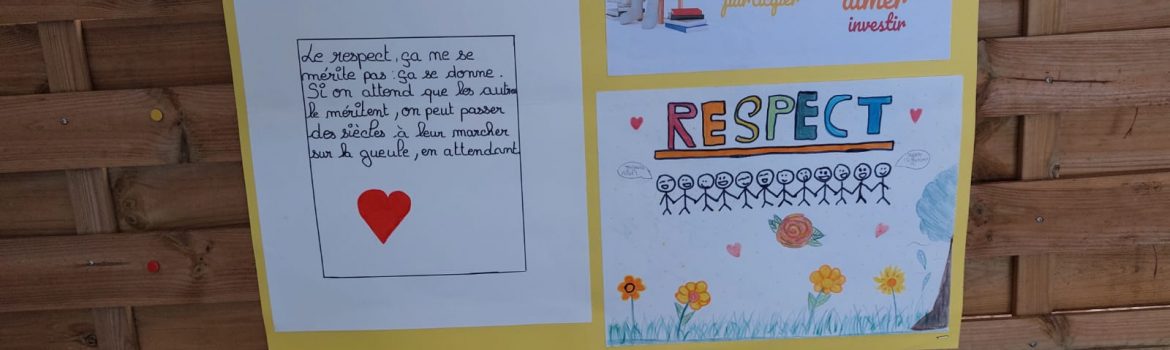 Le respect, ça ne se
mérite pas : ça se donne.
Si on attend que les autre
le méritent, on peut passer
des siècles à leur marcher
sur la gueule, en attendant.
participer
aimer
investir
RESPECT